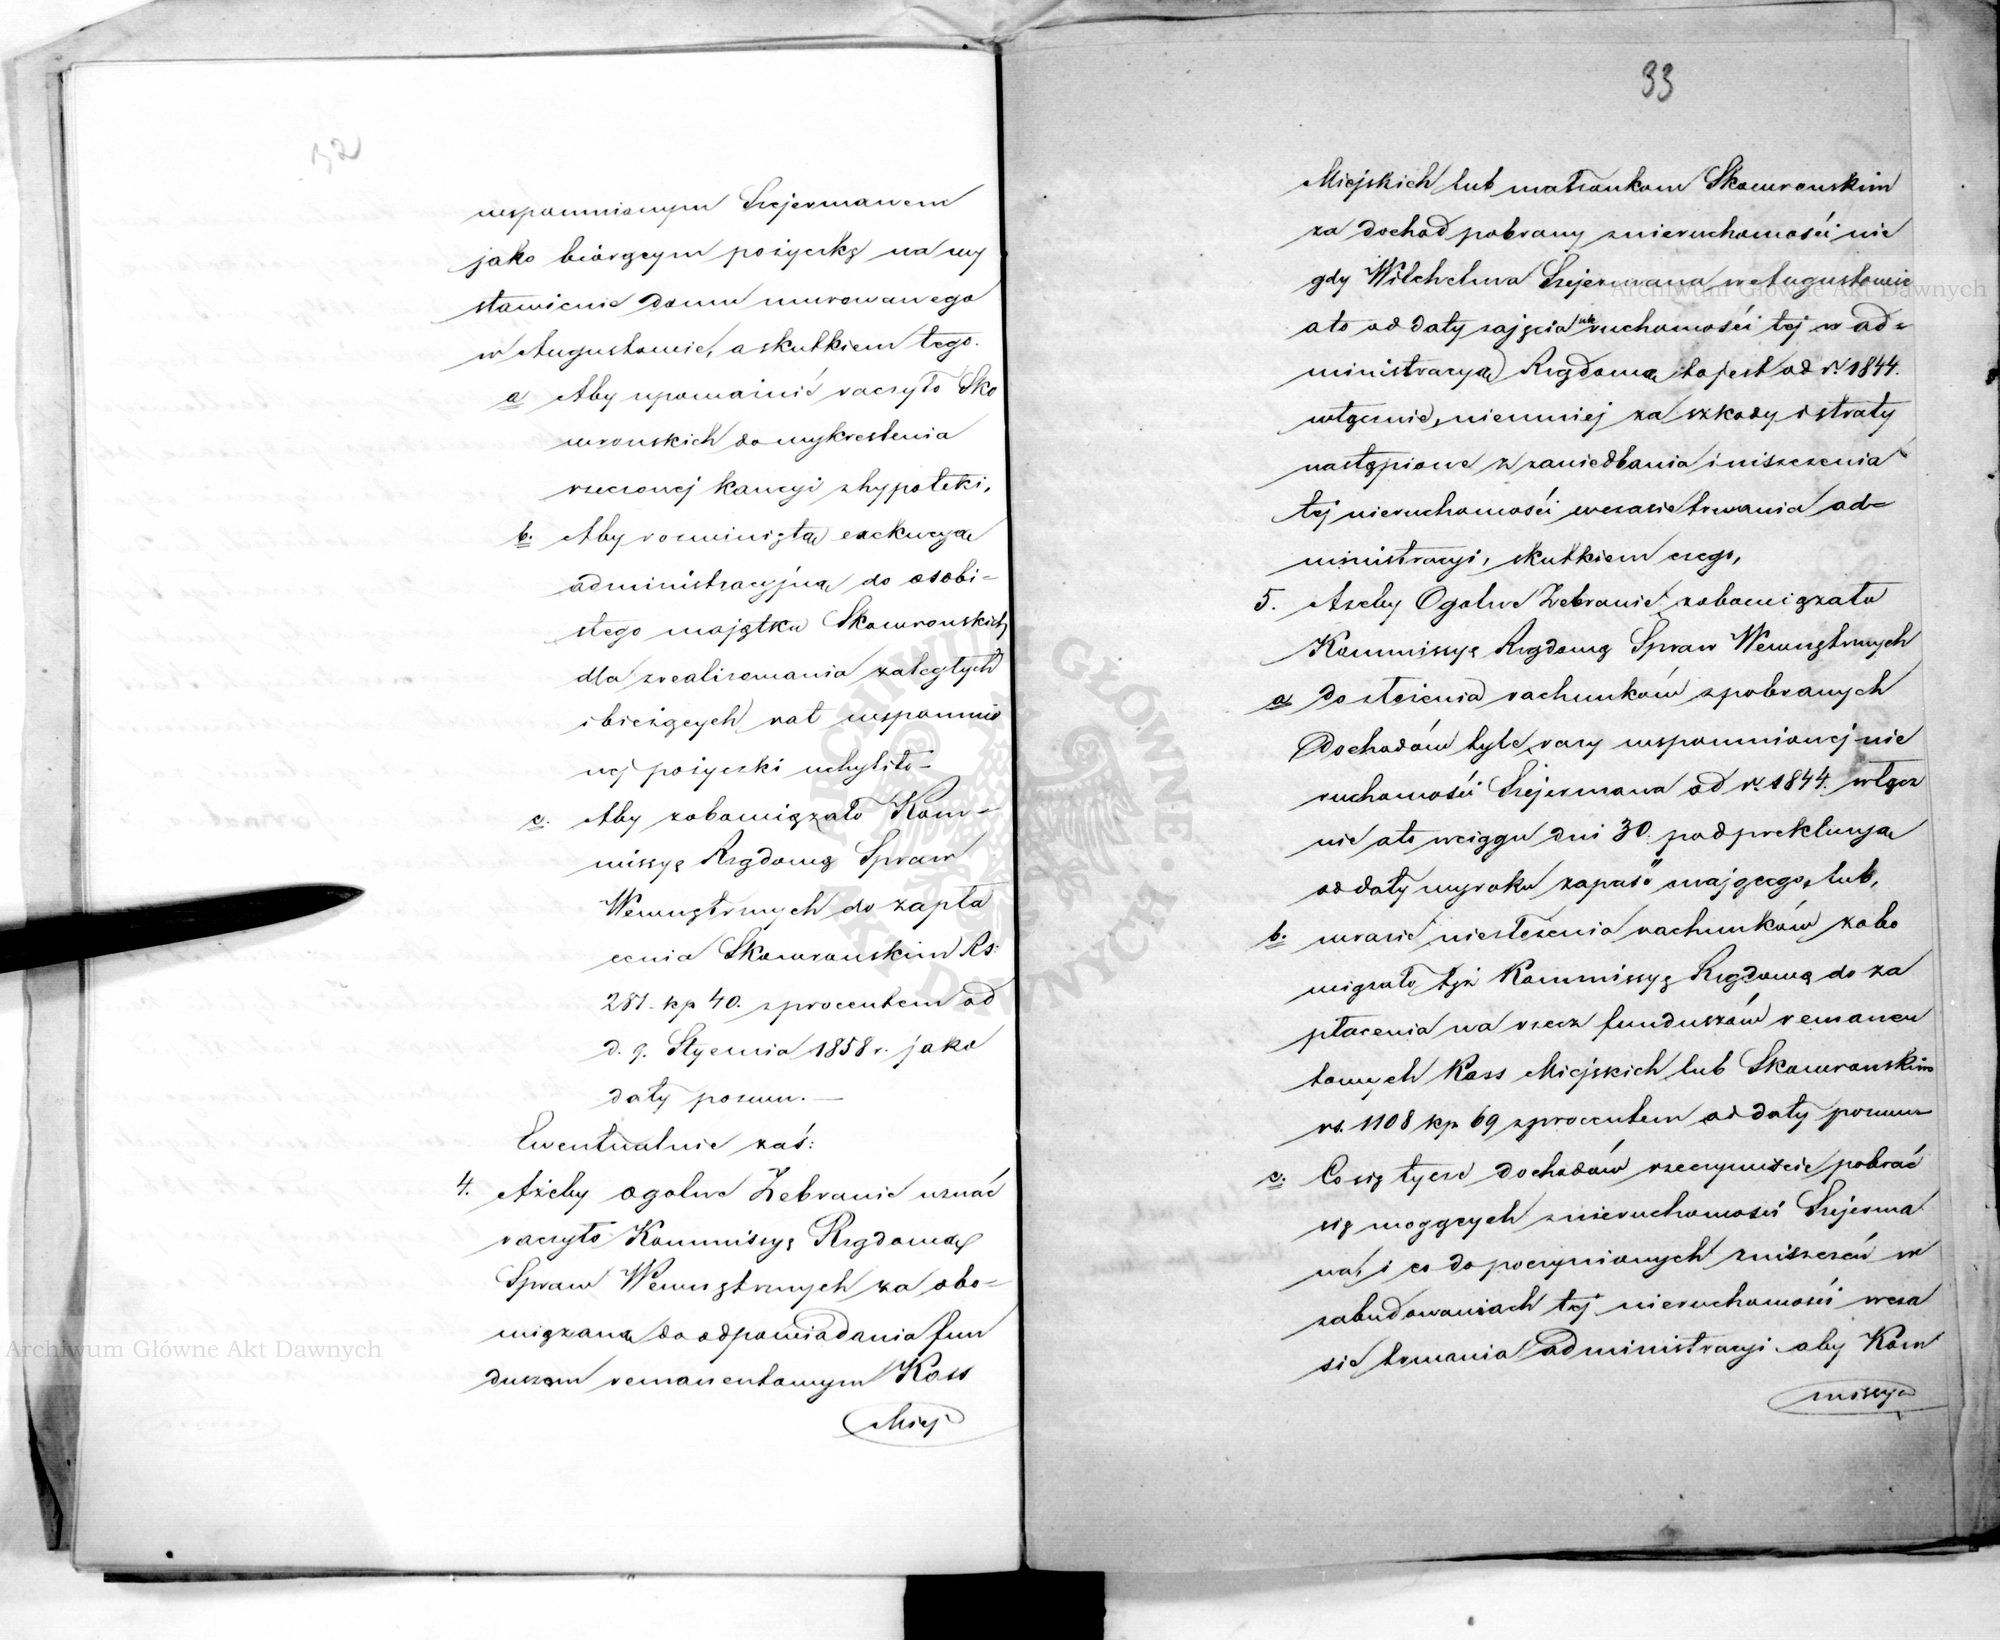 32
wspomnionym Szejermanem
jako biorącym pożyczkę na wy
stawienie domu murowanego
w Augustowie, a skutkiem tego.
a Aby upoważnić raczyło Sko
wronskich do wykreslenia
rzeczonej kaucyi z hypoteki,
b. Aby rozwiniętą exekucyą
administracyjną do osobi=
stego majątku Skowronskich
dla zrealizowania zaległych
i bieżących rat wspomnio
nej pożyczki uchyliło –
c. Aby zobowiązało Kom=
missyę Rządową Spraw
Wewnętrznych do zapła
cenia Skowronskim Rs:
281. kp 40. z procentem od
d. 9. Stycznia 1858 r. jako
daty pozwu. —
Ewentualnie zaś:
4. Ażeby ogolne Zebranie uznać
raczyło Kommissyę Rządową
Spraw Wewnętrznych za obo=
wiązaną do odpowiadania fun
duszom remanentowym Kass
Miej
33
Miejskich lub małżonkom Skowronskim
za dochod pobrany z nieruchomości nie
gdy Wilhelma Szejermana w Augustowie
a to od daty zajęcia nieruchomości tej w ad=
ministracyą Rządową to jest od r. 1844.
włącznie, niemniej za szkody i straty
nastąpione z zaniedbania i niszczenia
tej nieruchomości w czasie trwania ad=
ministracyi, skutkiem czego,
5. Azeby Ogolne Zebranie zobowiązało
Kommissyę Rządową Spraw Wewnętrznych
a do złożenia rachunków z pobranych
dochodów tyle razy wspomnionej nie
ruchomości Szejermana od r. 1844. włącz
nie a to w ciągu dni 30. pod prekluzyą
od daty wyroku zapaść mającego, lub,
b. w razie niezłożenia rachunków zobo
wiązało tęż Kommissyę Rządową do za
płacenia na rzecz funduszów remanen
towych Kass Miejskich lub Skowronskim
rs. 1108 kp 69 z procentem od daty pozwu
c. Co się tycze dochodów rzeczywiście pobrać
się mogących z nieruchomości Szejerma
na, i co do poczynionych zniszczeń w
zabudowaniach tej nieruchomości w cza
sie trwania administracyi aby Kom
missya
Archiwum Główne Akt Dawnych
Archiwum Główne Akt Dawnych
ARCHIWUM GŁÓWNE AKT DAWNYCH